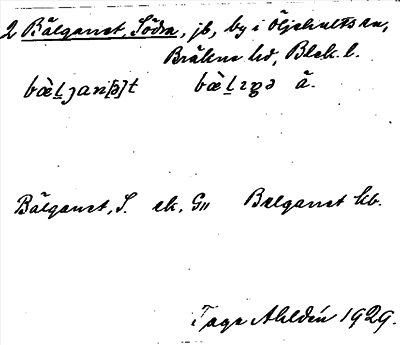 2 Bälganet, Södra, jb, by i Öljehults sn,
Bräkne hd, Blek. l.
bæ̀ḻȷan[ə]t bæ̀ḻıŋə å.
Bälganet, S. ek. G11 Balganet kb.
Tage Ahldén 1929.